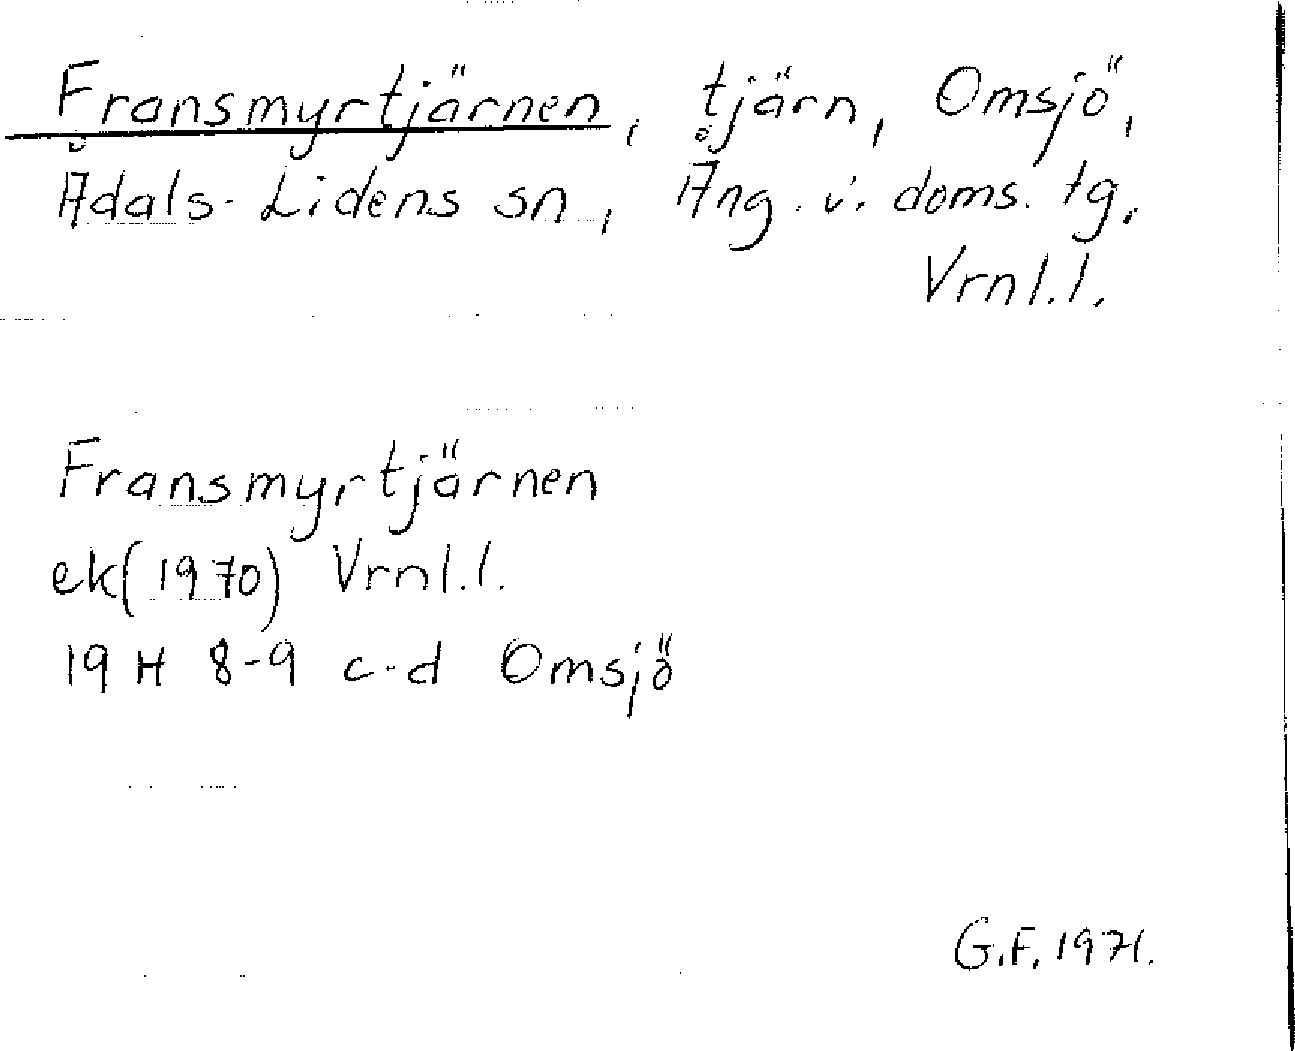 Fransmyrtjärnen, tjärn, Omsjö,
Ådals-Lidens sn, Ång. v. doms. tg.
Vrnl.l.
Fransmyrtjärnen
ek(1970) Vrnl.l.
19 H 8-9 c-d Omsjö
G.F. 1971.